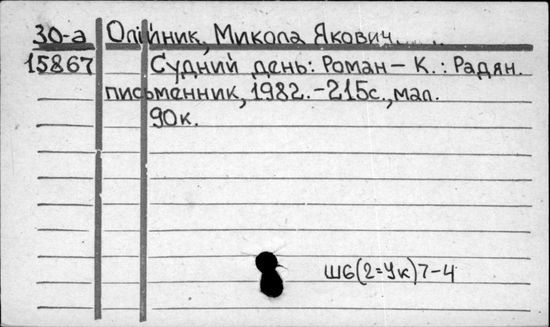 30-а Олійник, Микола Якович.
15867 Судний день: Роман – К.: Радян.
письменник, 1982. – 215с., мал.
90к.
Ш6(2=Ук)7-4